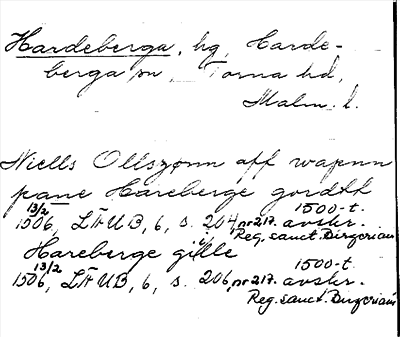 Hardeberga, hg, Harde-
berga sn, Torna hd,
Malm. l.
Niells Ollszønn aff wapnn
pane Hareberge gordtt
13/2 1506, LÄUB, 6, s. 204, nr 217. 1500-t. avskr.
Reg. sanct. Birgerian
Hareberge gille
13/2 1506, LÄUB, 6, s. 206, nr 217. 1500-t. avskr.
Reg. sanct. Birgerian